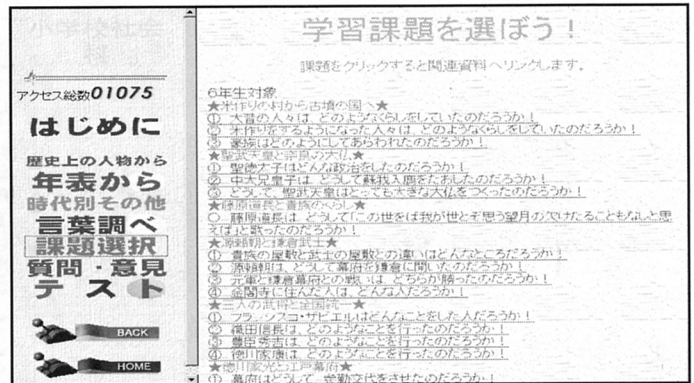 アクセス総数01075
はじめに
歴史上の人物から
年表から
時代別その他
言葉調べ
課題選択
質問・意見
テスト
BACK
HOME
学習課題を選ぼう！
課題をクリックすると関連資料へリンクします。
6年生対象
★米作りの村から古墳の国へ★
① 大昔の人々は、どのようなくらしをしていたのだろうか！
② 米作りをするようになった人々は、どのようなくらしをしていたのだろうか！
③ 豪族はどのようにしてあらわれたのだろうか！
★聖武天皇と奈良の大仏★
① 聖徳太子はどんな政治をしたのだろうか！
② 中大兄皇子は、どうして蘇我入鹿をたおしたのだろうか！
③ どうして、聖武天皇はとっても大きな大仏をつくったのだろうか！
★藤原道長と貴族のくらし★
○ 藤原道長は、どうして「この世をば我が世とぞ思う望月の欠けたることもなしと思
えば」と歌ったのだろうか！
★源頼朝と鎌倉武士★
① 貴族の屋敷と武士の屋敷との違いはどんなところだろうか！
② 源頼朝は、どうして幕府を鎌倉に開いたのだろうか！
③ 元軍と鎌倉幕府との戦いは、どちらが勝ったのだろうか！
④ 金閣寺に住んだ人は、どんな人だろうか！
★三人の武将と全国統一★
① フランシスコ・ザビエルはどんなことをした人だろうか！
② 織田信長は、どのようなことを行ったのだろうか！
③ 豊臣秀吉は、どのようなことを行ったのだろうか！
④ 徳川家康は、どのようなことを行ったのだろうか！
★徳川家光と江戸幕府★
① 幕府はどうして、参勤交代をさせたのだろうか！